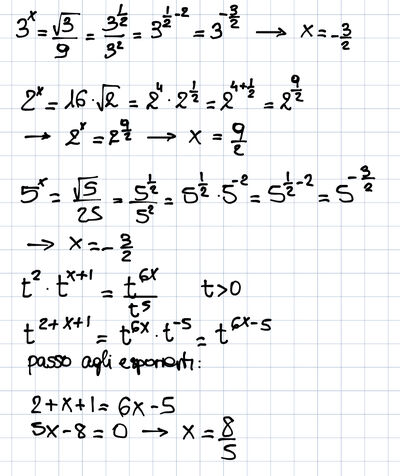 3^x = √3/9 = 3^(1/2)/3^2 = 3^(1/2-2) = 3^(-3/2) → x = -3/2
2^x = 16·√2 = 2^4 · 2^(1/2) = 2^(4+1/2) = 2^(9/2)
→ 2^x = 2^(9/2) → x = 9/2
5^x = √5/25 = 5^(1/2)/5^2 = 5^(1/2) · 5^(-2) = 5^(1/2-2) = 5^(-3/2)
→ x = -3/2
t^2 · t^(x+1) = t^(6x)/t^5 t>0
t^(2+x+1) = t^(6x) · t^(-5) = t^(6x-5)
passo agli esponenti:
2+x+1 = 6x-5
5x-8 = 0 → x = 8/5